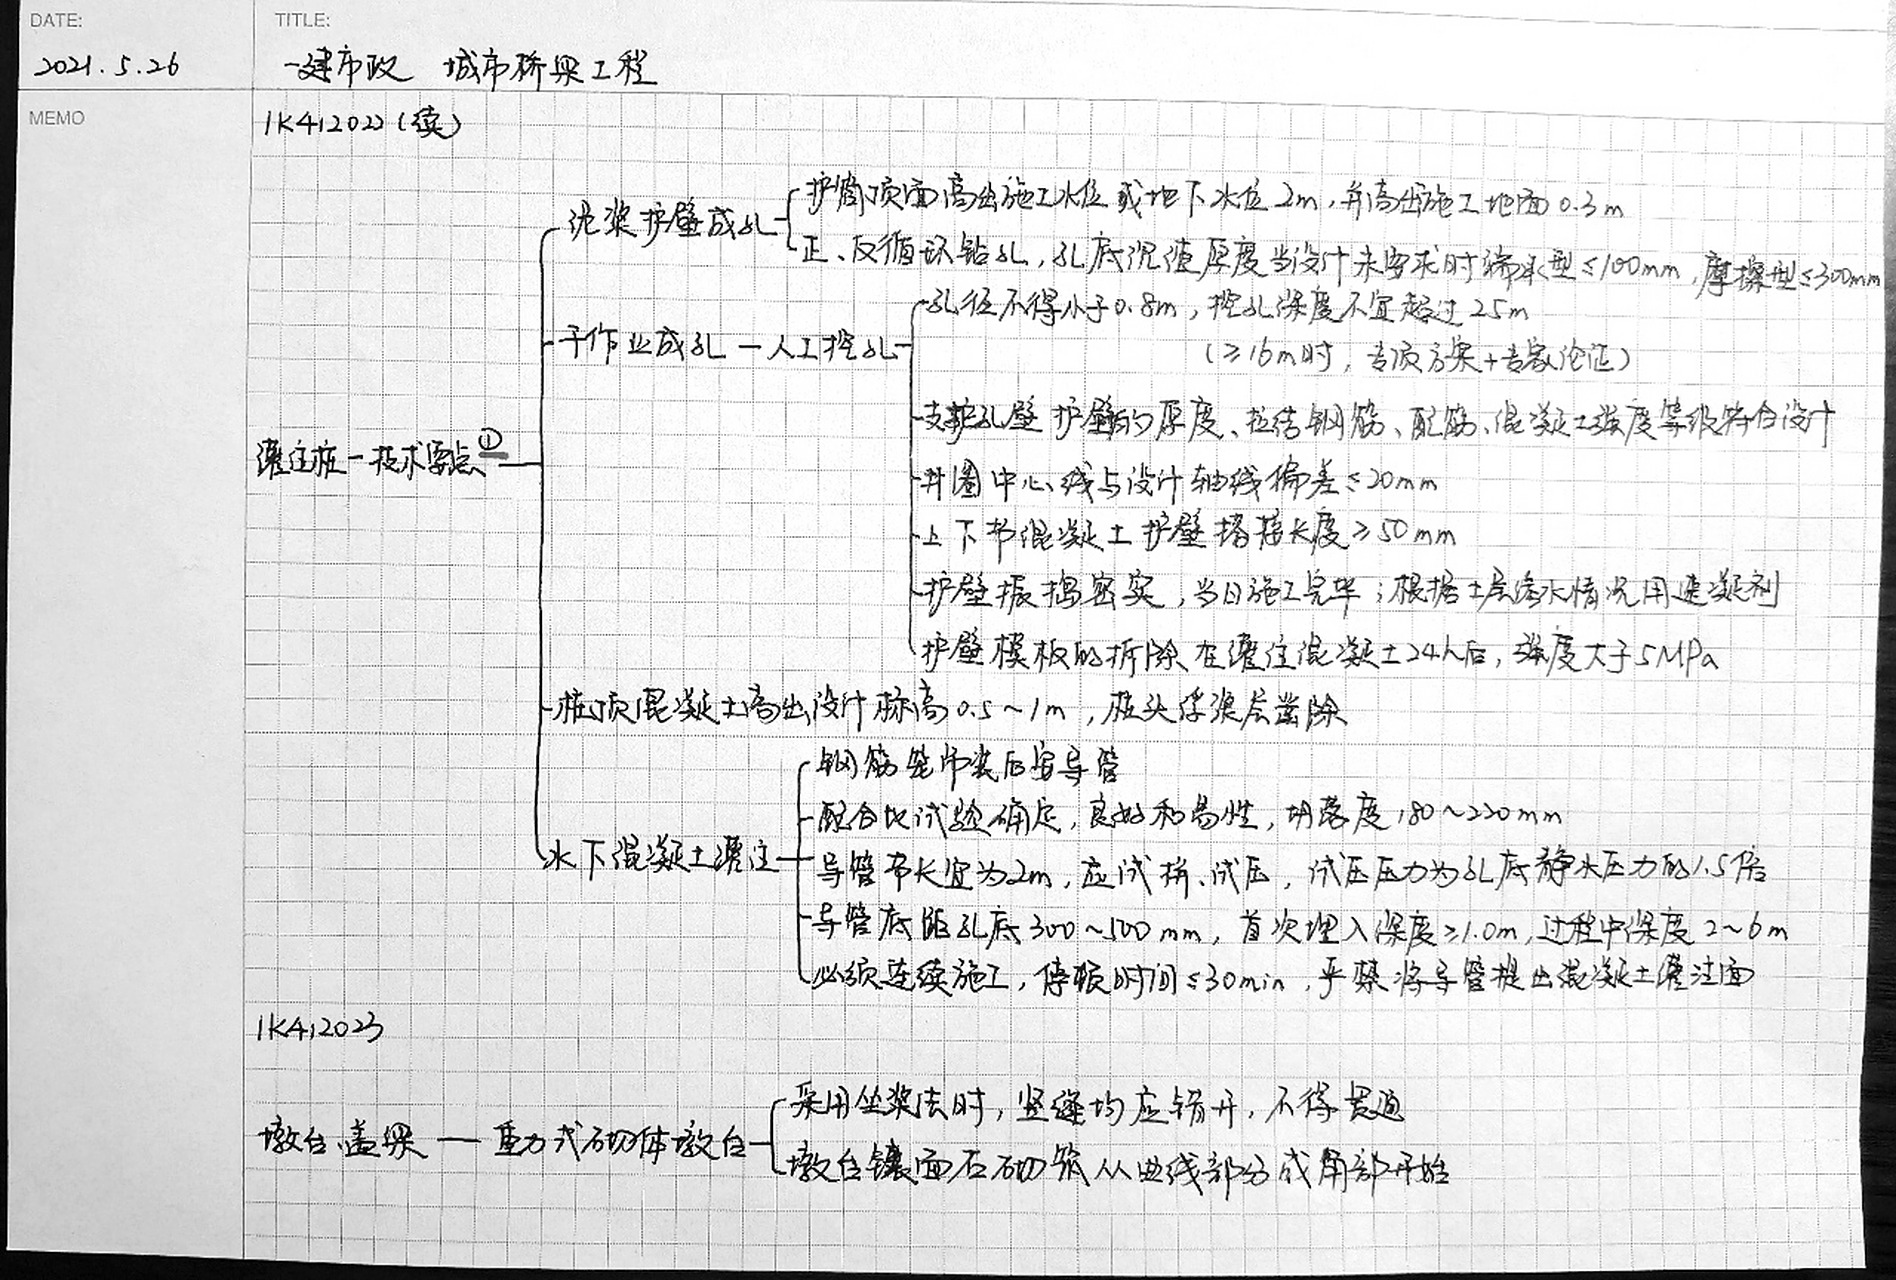 DATE:
TITLE:
2021.5.26
一建市政 城市桥梁工程
MEMO
1K412022(续)
护筒顶面高出施工水位或地下水位2m,并高出施工地面0.3m
泥浆护壁成孔
正、反循环钻孔,孔底沉渣厚度当设计未要求时端承型≤100mm,摩擦型≤300mm
孔径不得小于0.8m,挖孔深度不宜超过25m
干作业成孔—人工挖孔
(≥16m时,专项方案+专家论证)
支护孔壁护壁的厚度、拉结钢筋、配筋、混凝土强度等级符合设计
灌注桩—技术要点①
井圈中心线与设计轴线偏差≤20mm
上下节混凝土护壁搭接长度≥50mm
护壁振捣密实,当日施工完毕;根据土层渗水情况用速凝剂
护壁模板的拆除在灌注混凝土24h后,强度大于5MPa
桩顶混凝土高出设计标高0.5~1m,桩头浮浆层凿除
钢筋笼吊装后安导管
配合比试验确定,良好和易性,坍落度180~220mm
水下混凝土灌注
导管节长宜为2m,应试拼、试压,试压压力为孔底静水压力的1.5倍
导管底距孔底300~500mm,首次埋入深度≥1.0m,过程中深度2~6m
必须连续施工,停顿时间≤30min,严禁将导管提出混凝土灌注面
1K412023
采用坐浆法时,竖缝均应错开,不得贯通
墩台、盖梁—重力式砌体墩台
墩台镶面石砌筑从曲线部分或角部开始